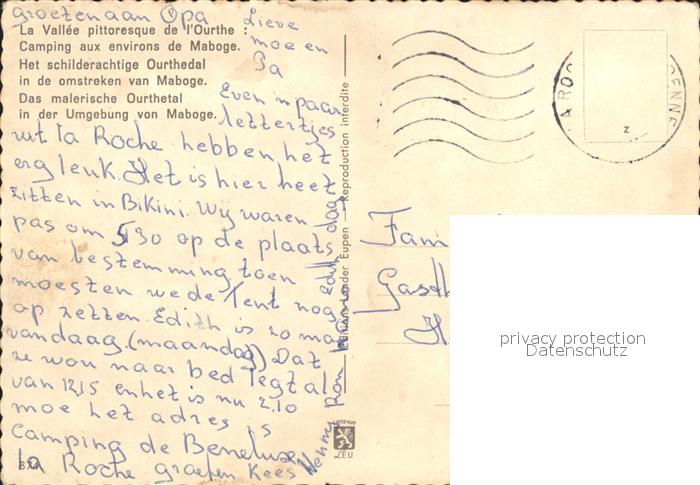 groeten aan Opa
La Vallée pittoresque de l'Ourthe :
Camping aux environs de Maboge.
Het schilderachtige Ourthedal
in de omstreken van Maboge.
Das malerische Ourthetal
in der Umgebung von Maboge.
Lieve
moe en
Pa
Even 'n paar
lettertjes
uit la Roche hebben het
erg leuk. Het is hier heet
zitten in Bikini. Wij waren
pas om 5,30 op de plaats
van bestemming toen
moesten we de Tent nog
op zetten Edith is zo moe
vandaag. (maandag) Dat
ze wou naar bed legt al
van 12,15 en het is nu 2,10
moe het adres is
Camping de Benelux
la Roche groeten Kees
Ron Edith dag
Editions Lander Eupen — Reproduction interdite
LA ROC
ENNE
Z
Fam
Gasth
H
privacy protection
Datenschutz
LEU